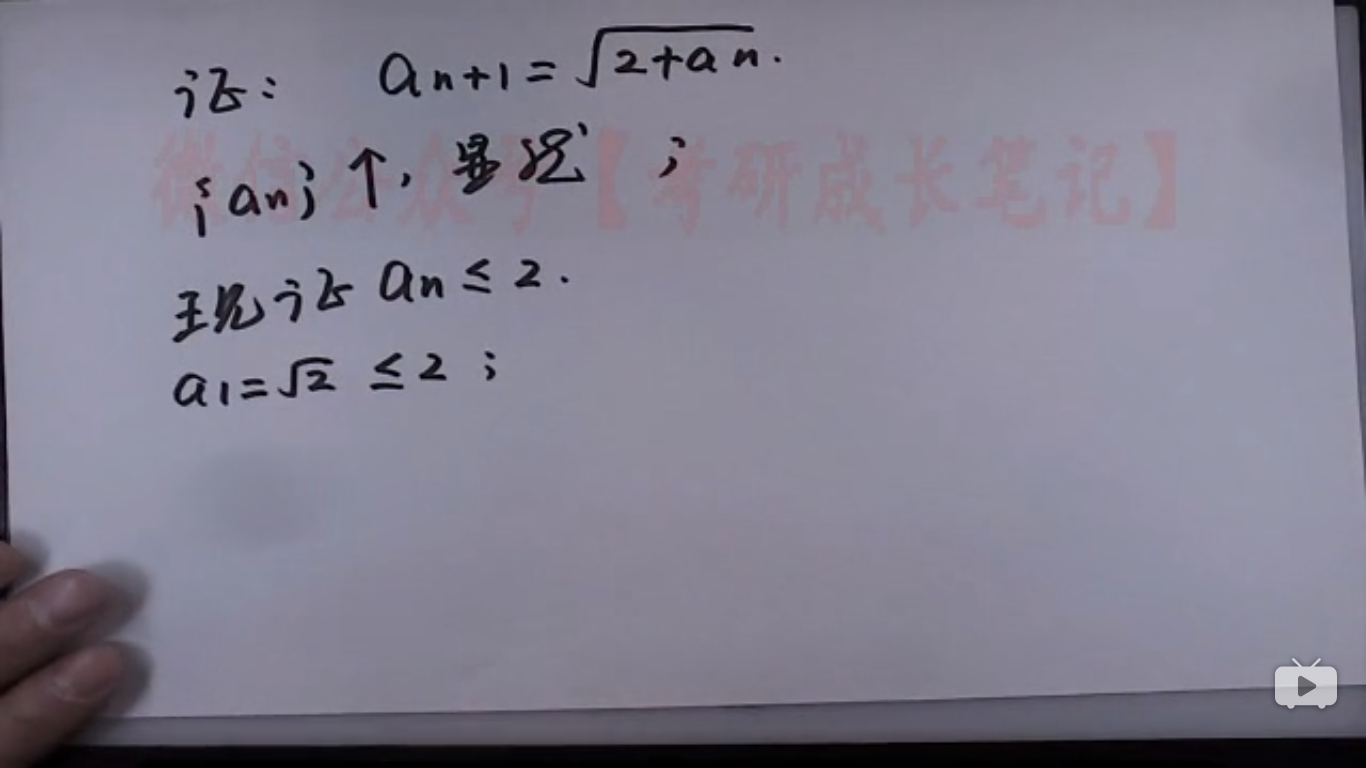 证： an+1=√2+an.
{an}↑，显然；
现证 an≤2.
a1=√2 ≤2；
微信公众号【考研成长笔记】